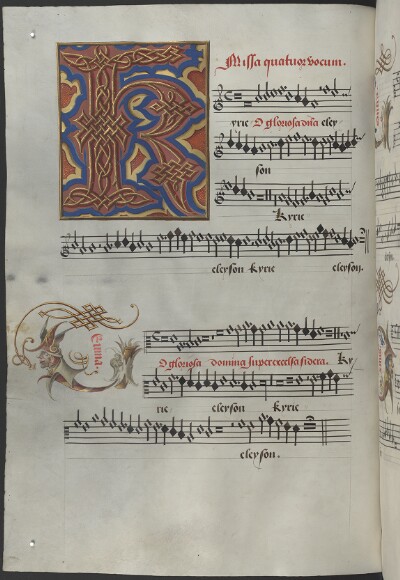 Missa quatuor vocum.
K
yrie O gloriosa dña eley
son
Kyrie
eleyson Kyrie eleyson.
O gloriosa domina super excelsa sidera. Ky
rie eleyson Kyrie
eleyson.